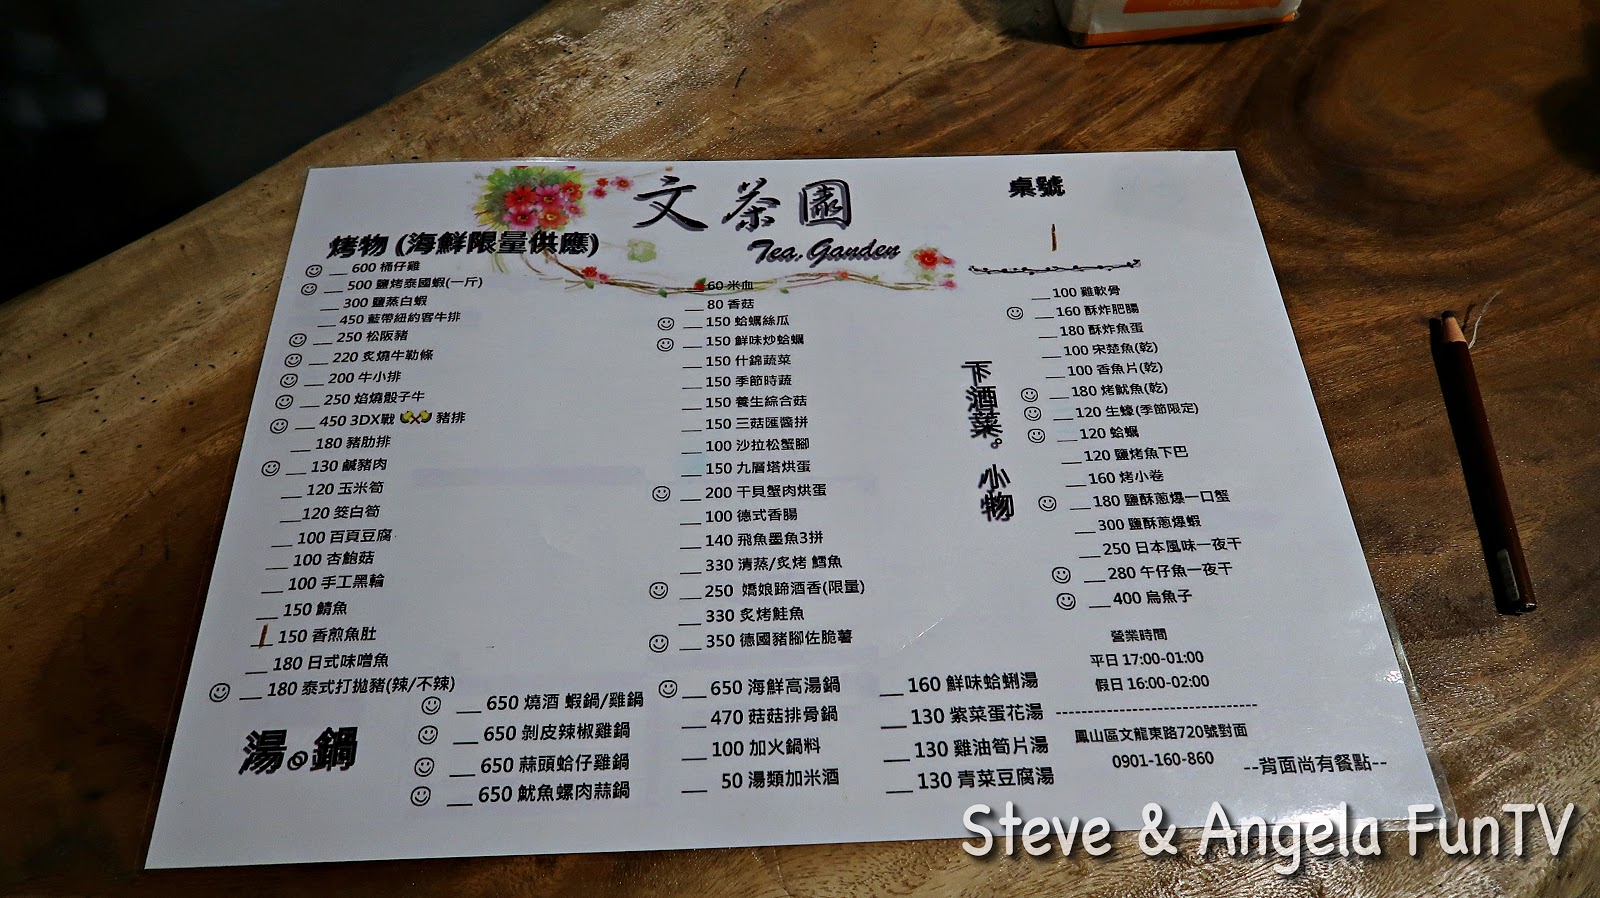 文茶園
Tea. Ganden
桌號
烤物 (海鮮限量供應)
600 桶仔雞
500 鹽烤泰國蝦(一斤)
300 鹽蒸白蝦
450 藍帶紐約客牛排
250 松阪豬
220 炙燒牛肋條
200 牛小排
250 焰燒骰子牛
450 3DX戰 豬排
180 豬肋排
130 鹹豬肉
120 玉米筍
120 筊白筍
100 百頁豆腐
100 杏鮑菇
100 手工黑輪
150 鯖魚
150 香煎魚肚
180 日式味噌魚
180 泰式打拋豬(辣/不辣)
60 米血
80 香菇
150 蛤蠣絲瓜
150 鮮味炒蛤蠣
150 什錦蔬菜
150 季節時蔬
150 養生綜合菇
150 三菇匯醬拼
100 沙拉松蟹腳
150 九層塔烘蛋
200 干貝蟹肉烘蛋
100 德式香腸
140 飛魚墨魚3拼
330 清蒸/炙烤 鱈魚
250 嬌娘蹄酒香(限量)
330 炙烤鮭魚
350 德國豬腳佐脆薯
下酒菜。小物
100 雞軟骨
160 酥炸肥腸
180 酥炸魚蛋
100 宋楚魚(乾)
100 香魚片(乾)
180 烤魷魚(乾)
120 生蠔(季節限定)
120 蛤蠣
120 鹽烤魚下巴
160 烤小卷
180 鹽酥蔥爆一口蟹
300 鹽酥蔥爆蝦
250 日本風味一夜干
280 午仔魚一夜干
400 烏魚子
湯。鍋
650 燒酒 蝦鍋/雞鍋
650 剝皮辣椒雞鍋
650 蒜頭蛤仔雞鍋
650 魷魚螺肉蒜鍋
650 海鮮高湯鍋
470 菇菇排骨鍋
100 加火鍋料
50 湯類加米酒
160 鮮味蛤蜊湯
130 紫菜蛋花湯
130 雞油筍片湯
130 青菜豆腐湯
營業時間
平日 17:00-01:00
假日 16:00-02:00
鳳山區文龍東路720號對面
0901-160-860
--背面尚有餐點--
Steve & Angela FunTV